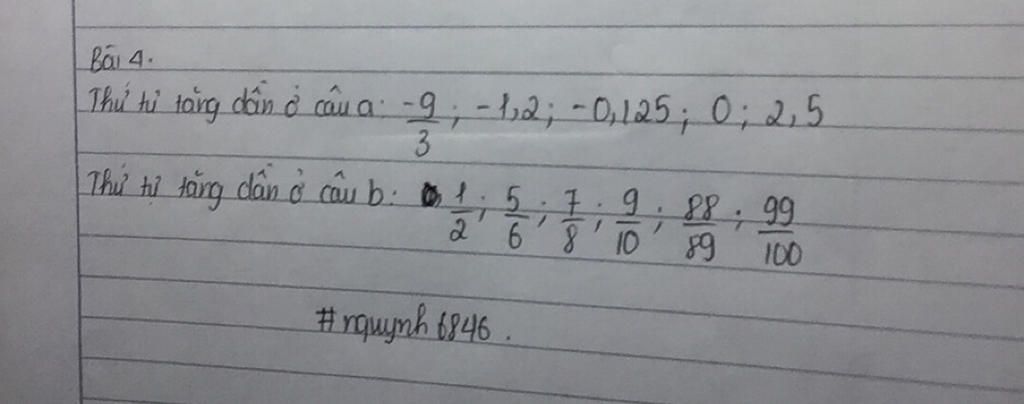 Bài 4.
Thứ tự tăng dần ở câu a: -9/3; -1,2; -0,125; 0; 2,5
Thứ tự tăng dần ở câu b: 1/2; 5/6; 7/8; 9/10; 88/89; 99/100
#nquynh6846.